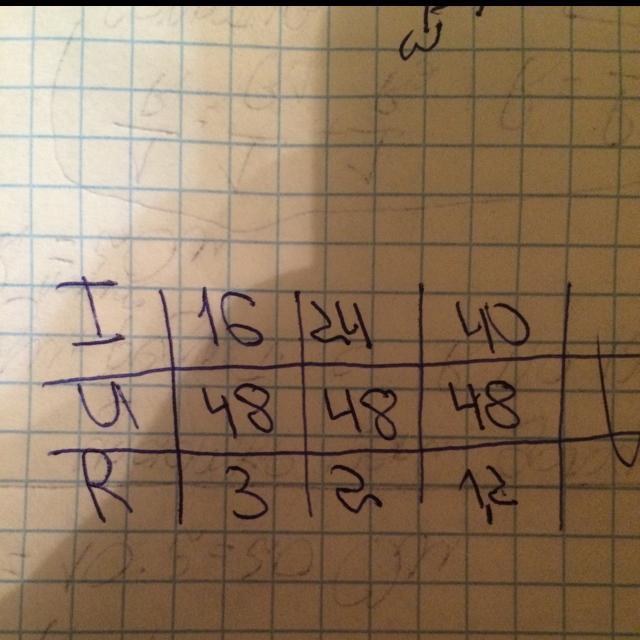 I 16 24 40
U 48 48 48
R 3 2 1,2